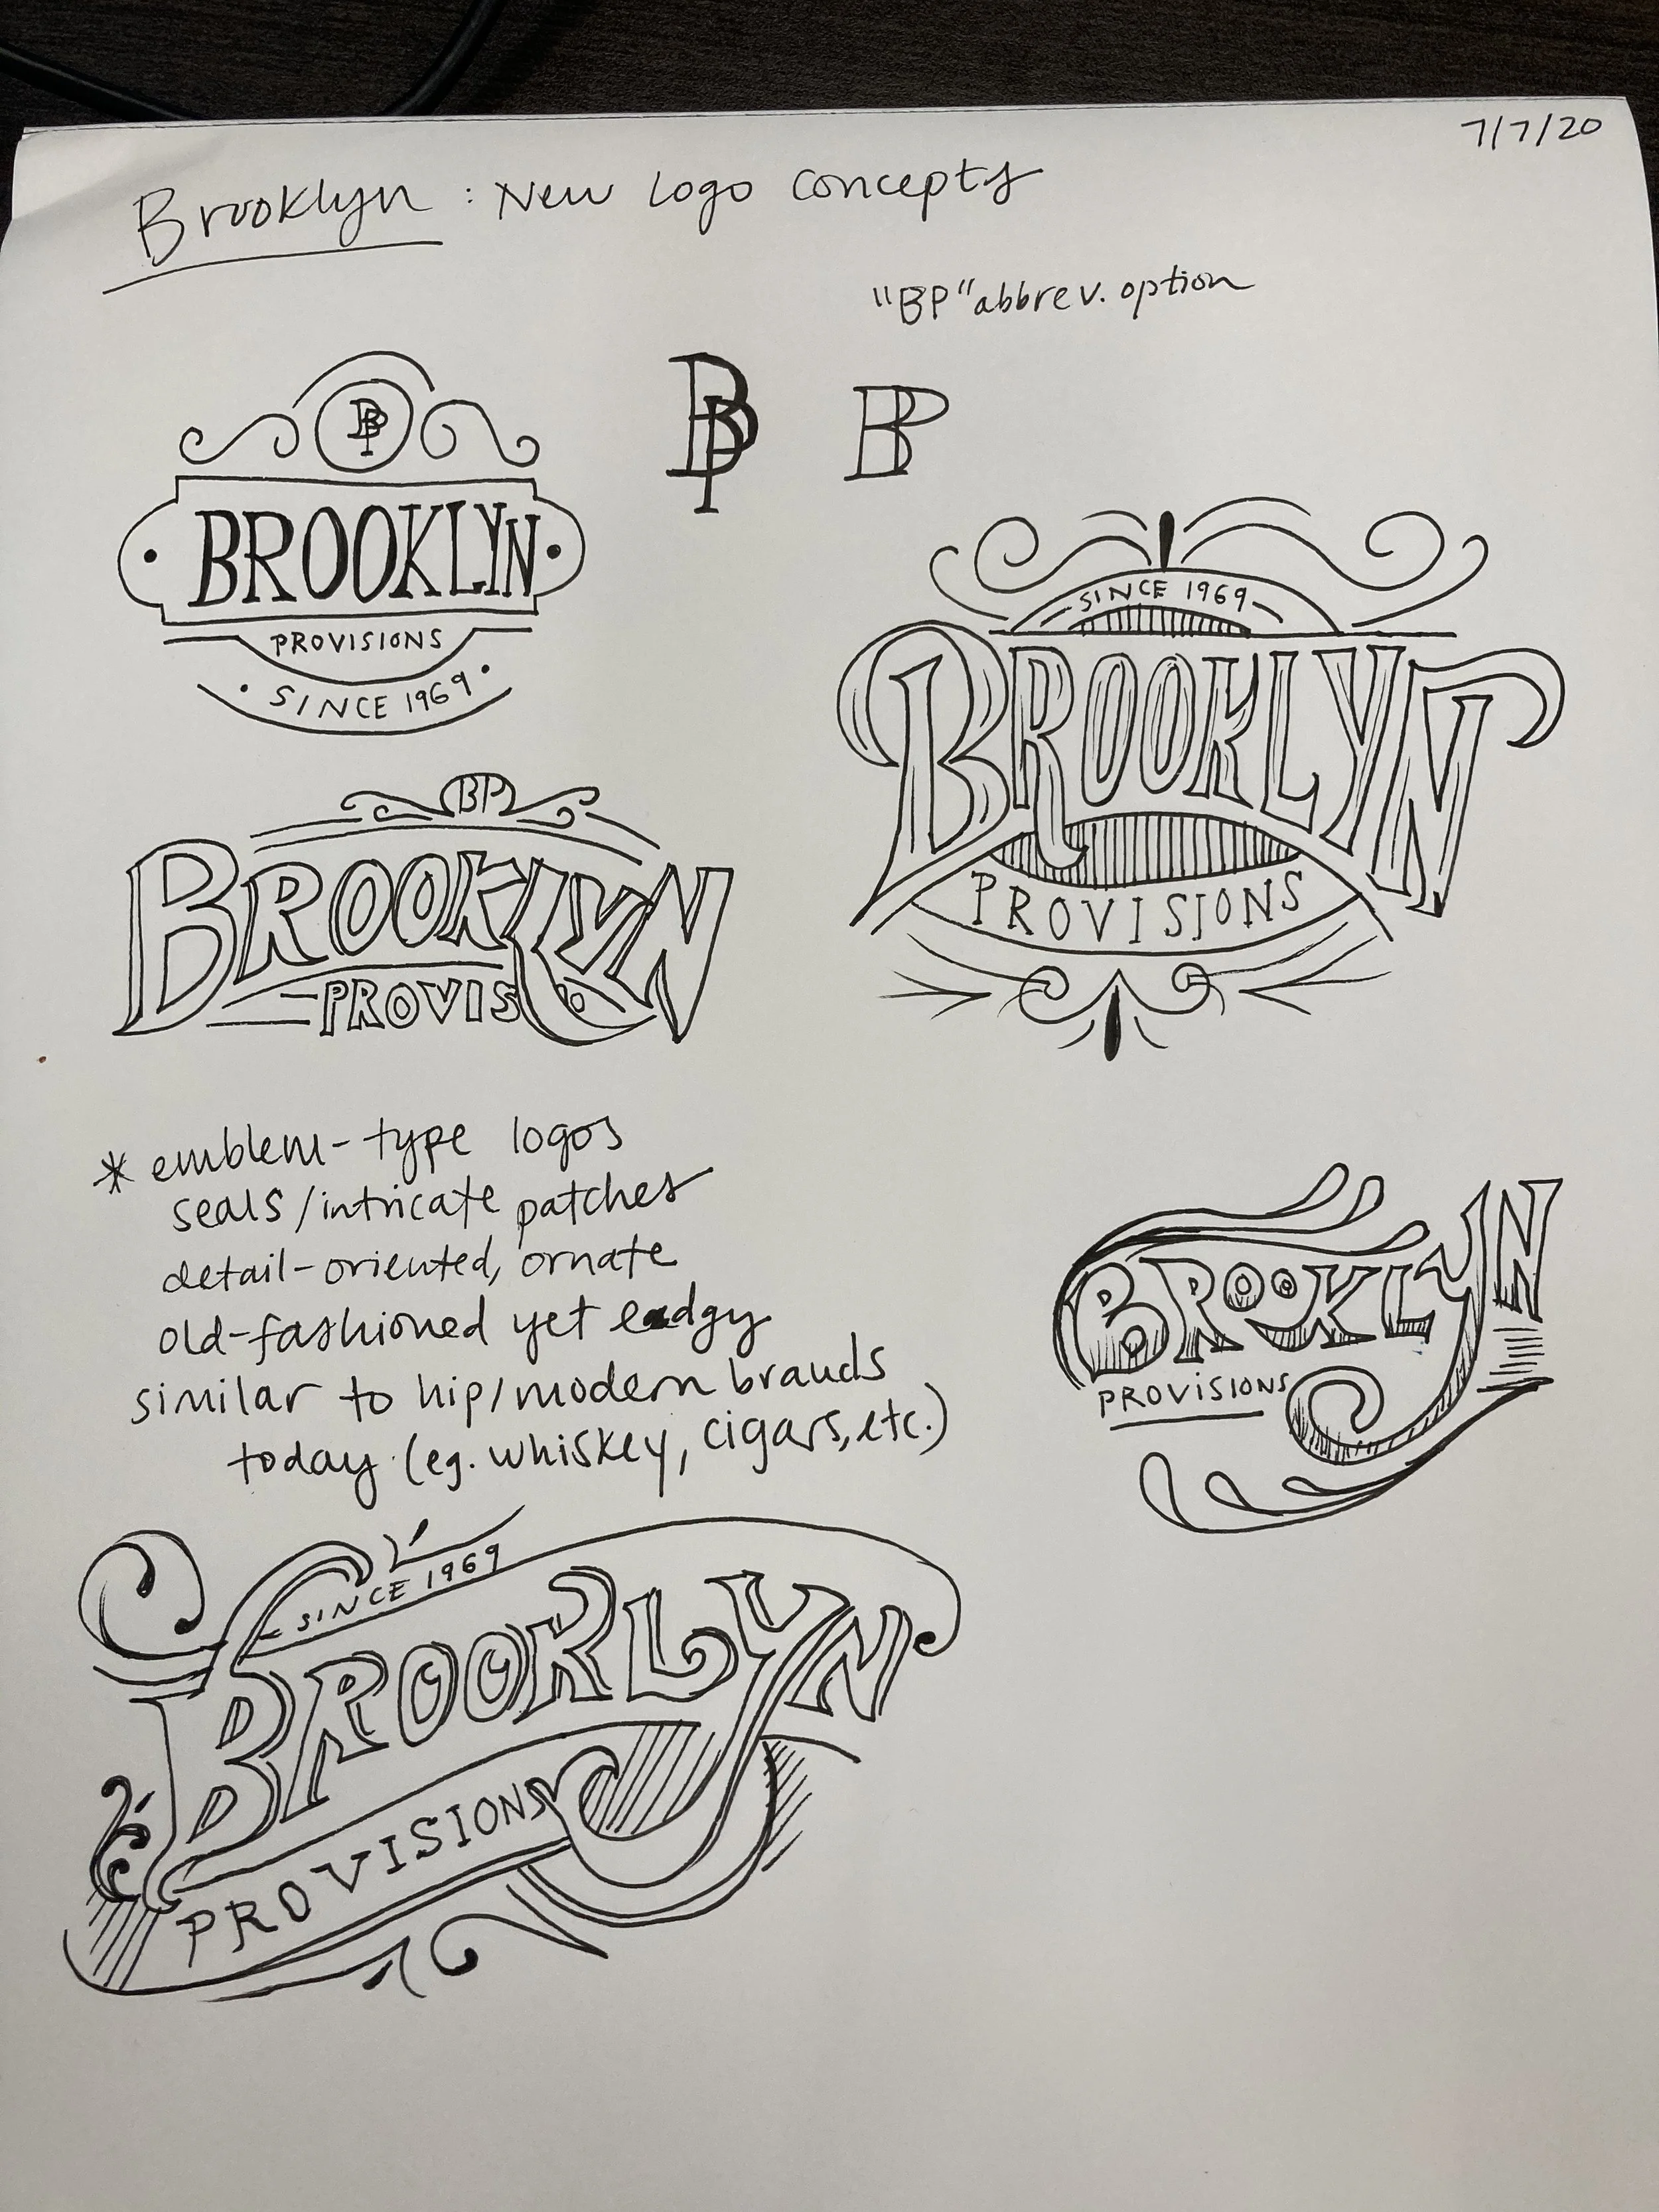 7/7/20
Brooklyn : New logo concepts
"BP" abbrev. option
BP
BROOKLYN
PROVISIONS
SINCE 1969
BP
BP
SINCE 1969
BROOKLYN
PROVISIONS
BP
BROOKLYN
PROVISO
* emblem-type logos
seals/intricate patches
detail-oriented, ornate
old-fashioned yet edgy
similar to hip/modern brands
today (eg. whiskey, cigars, etc.)
BROOKLYN
PROVISIONS
SINCE 1969
BROOKLYN
PROVISIONS